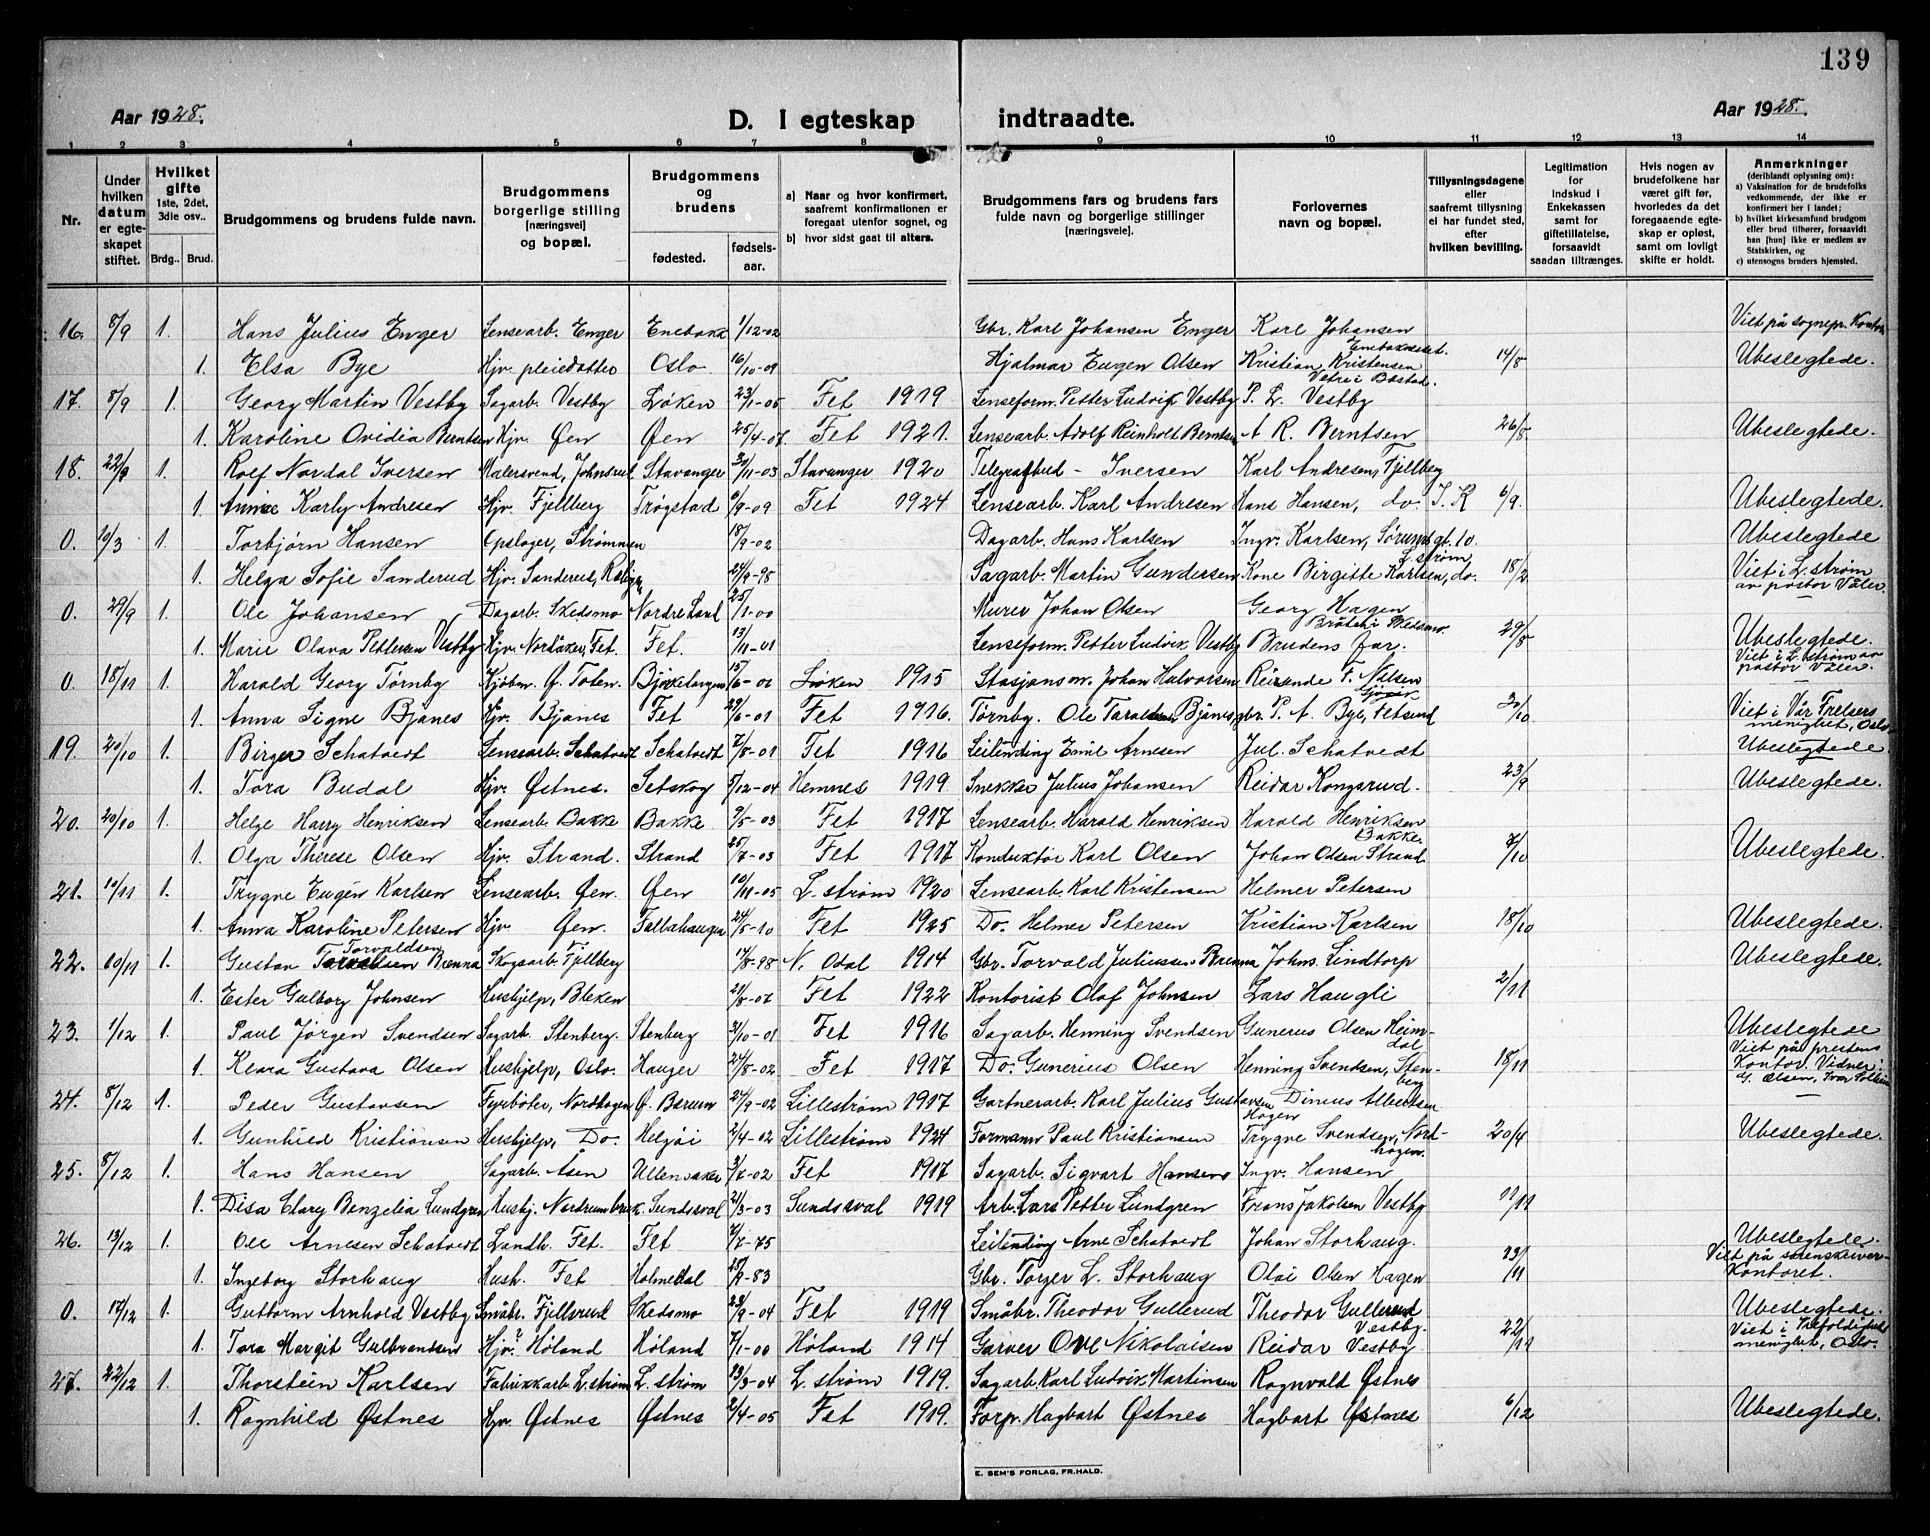 139
Aar 1928.
D. I egteskap indtraadte.
Aar 1928.
1 2 3 4 5 6 7 8 9 10 11 12 13 14
Nr.
Under hvilken datum er egteskapet stiftet.
Hvilket gifte 1ste, 2det, 3die osv..
Brdg.. Brud.
Brudgommens og brudens fulde navn.
Brudgommens borgerlige stilling [næringsvei] og bopæl.
Brudgommens og brudens
fødested. fødsels-aar.
a) Naar og hvor konfirmert, saafremt konfirmationen er foregaat utenfor sognet, og
b) hvor sidst gaat til alters.
Brudgommens fars og brudens fars fulde navn og borgerlige stillinger [næringsveie].
Forlovernes navn og bopæl.
Tillysningsdagene eller saafremt tillysning ei har fundet sted, efter hvilken bevilling.
Legitimation for indskud i Enkekassen samt for giftetillatelse, forsaavidt saadan tiltrænges.
Hvis nogen av brudefolkene har været gift før, hvorledes da det foregaaende egteskap er opløst, samt om lovligt skifte er holdt.
Anmerkninger (deriblandt oplysning om):
a) Vaksination for de brudefolks vedkommende, der ikke er konfirmert her i landet;
b) hvilket kirkesamfund brudgom eller brud tilhører, forsaavidt han [hun] ikke er medlem av Statskirken, og
c) utensogns bruders hjemsted.
16. 8/9 1. Hans Julius Enger Lensearb. Enger Enebakk 1/12-02 Gbr. Karl Johansen Enger Karl Johansen Enebakneset. Viet på sognepr. Kontor
1. Elsa Bye Hjv. pleiedatter Oslo 16/10-09 Hjalmar Eugen Olsen Kristian Kristensen Vetre i Båstad. 14/8 Ubeslegtede.
17. 8/9 1. Georg Martin Vestby Sagarb. Vestby Løken 23/1-05 Fet 1919 Lenseform. Petter Ludvik Vestby P. L. Vestby
1. Karoline Ovidia Berntsen Hjv. Øen Øen 25/4-07 Fet 1921. Lensearb. Adolf Reinholt Berntsen A R. Berntsen 26/8 Ubeslegtede.
18. 22/9 1. Rolf Nordal Iversen Malersvend, Johnsrud Stavanger 30/11-03 Stavanger 1920 Telegrafbud - Iversen Karl Andresen, Fjellberg
1. Annie Karly Andresen Hjv. Fjellberg Trøgstad 6/9-09 Fet 1924 Lensearb. Karl Andresen Hans Hansen, do. I. R 6/9. Ubeslegtede.
0. 10/3 1. Torbjørn Hansen Opslager, Strømmen 18/9-02 Dagarb. Hans Karlsen Ingv. Karlsen, Sørumsgt. 10. L.strøm Ubeslegtede
1. Helga Sofie Sanderud Hjv. Sanderud, Rælingen 24/9-98 Sagarb. Martin Gundersen Kone Birgitte Karlsen, do. 18/2 Viet i L.strøm av pastor Våler.
0. 29/9 1. Ole Johansen Dagarb. Skedsmo Nordre Land 25/1-00 Murer Johan Olsen Georg Hagen Bråten i Skedsmo.
1. Marie Olava Pettersen Vestby Hjv. Nordåker, Fet. Fet. 13/11-01 Lenseform. Petter Ludvik Vestby Brudens far. 29/8 Ubeslegtede. Viet i L.strøm av pastor Våler.
0. 18/11 1. Harald Georg Tørnby Kjøbm. Ø. Toten. Bjørkelangen 15/6-01 Løken 1915 Stasjonsm. Johan Halvorsen Reisende F. Nilsen Gjøvik
1. Anna Signe Bjanes Hjv. Bjanes Fet 29/6-01 Fet 1916. Tørnby. Ole Taraldsen Bjanes, gbr. P. A. Bye, Fetsund 20/10 Viet i Vår Frelsers menighet, Oslo.
19. 20/10 1. Birger Schatvedt Lensearb. Schatvedt Schatvedt 7/8-01 Fet 1916 Leilending Emil Arnesen Jul. Schatvedt Ubeslegtede
1. Tora Budal Hjv. Østnes. Setskog 5/12-04 Hemnes 1919. Snekker Julius Johansen Reidar Kongsrud. 23/9 Ubeslegtede.
20. 20/10 1. Helge Harry Henriksen Lensearb. Bakke Bakke 9/5-03 Fet 1917 Lensearb. Harald Henriksen Harald Henriksen Bakke.
1. Olga Therese Olsen Hjv. Strand. Strand 25/7-03 Fet 1917 Konduktør Karl Olsen Johan Olsen Strand 7/10 Ubeslegtede.
21. 10/11 1. Trygve Eugén Karlsen Lensearb. Øen. Øen 10/11-05 L.strøm 1920 Lensearb. Karl Kristensen Helmer Petersen
1. Anna Karoline Petersen Hjv. Øen. Falbahaugen 24/5-10 Fet 1925 Do. Helmer Petersen Kristian Karlsen 18/10 Ubeslegtede.
22. 10/11 1. Gustav Torvaldsen Brænna Skogsarb. Fjellberg 17/8-98 N. Odal 1914 Gbr. Torvald Juliussen Brenna Johs. Lindtorp Ubeslegtede.
1. Ester Gulborg Johnsen Hushjelp, Bleken 21/8-07 Fet 1922 Kontorist Olaf Johnsen Lars Haugli 2/11
23. 1/12 1. Paul Jørgen Svendsen Sagarb. Stenberg. Stenberg 21/10-01 Fet 1916 Sagarb. Henning Svendsen Gunerus Olsen Heimdal Ubeslegtede
1. Klara Gustava Olsen Hushjelp, Oslo. Hauger 24/8-02 Fet 1917 Do. Gunerius Olsen Henning Svendsen, Stenberg 18/11 Viet på prestens Kontor. Vidner: G. Olsen, Ivar
24. 8/12 1. Peder Gustavsen Fyrbøter, Nordhagen Ø. Bærum 24/9-02 Lillestrøm 1917 Gartnerarb. Karl Julius Gustavsen Dinius Albertsen Hagen
1. Gunhild Kristiansen Hushjelp, Do. Helgøi 2/4-02 Lillestrøm 1924 Formann Paul Kristiansen Trygve Svendsen, Nordhagen. 20/4 Ubeslegtede.
25. 8/12 1. Hans Hansen Sagarb. Åsen Ullensaker 3/7-02 Fet 1917 Sagarb. Sigvart Hansens Ingv. Hansen
1. Disa Clary Benzelia Lundgren Hushj. Nordrumbruk. Sundsval 21/3-03 Sundsval 1919 Arb. Lars Petter Lundgren Frans Jakobsen Vestby 11/11
26. 13/12 1. Ole Arnesen Schatvedt Landh. Fet. Fet 7/7-75 Leilending Arne Schatvedt Johan Storhaug. Ubeslegtede.
1. Ingeborg Storhaug Hush. Fet Holmedal 25/9-83 Gbr. Torger L. Storhaug Olai Olsen Hagen 13/11 Viet på sorenskriverkontoret.
0. 17/12 1. Guttorm Arnhold Vestby Småbr. Fjellsrud Skedsmo 23/9-04 Fet 1919 Småbr. Theodor Gullerud Theodor Gullerud Vestby. Ubeslegtede.
1. Tora Margit Gulbrandsen Hjv. Høland Høland 7/1-00 Høland 1914 Garver Ove Nikolaisen Reidar Vestby 22/11 Viet i Trefoldighets menighet, Oslo.
27. 22/12 1. Thorstein Karlsen Fabrikkarb. L.strøm L.strøm 23/3-04 L.strøm 1919. Sagarb. Karl Ludvik Martinsen Ragnvald Østnes
1. Ragnhild Østnes Hjv. Østnes Østnes 2/4-05 Fet 1919. Forp. Hagbart Østnes Hagbart Østnes 6/12 Ubeslegtede.
E. SEM'S FORLAG, FR.HALD.